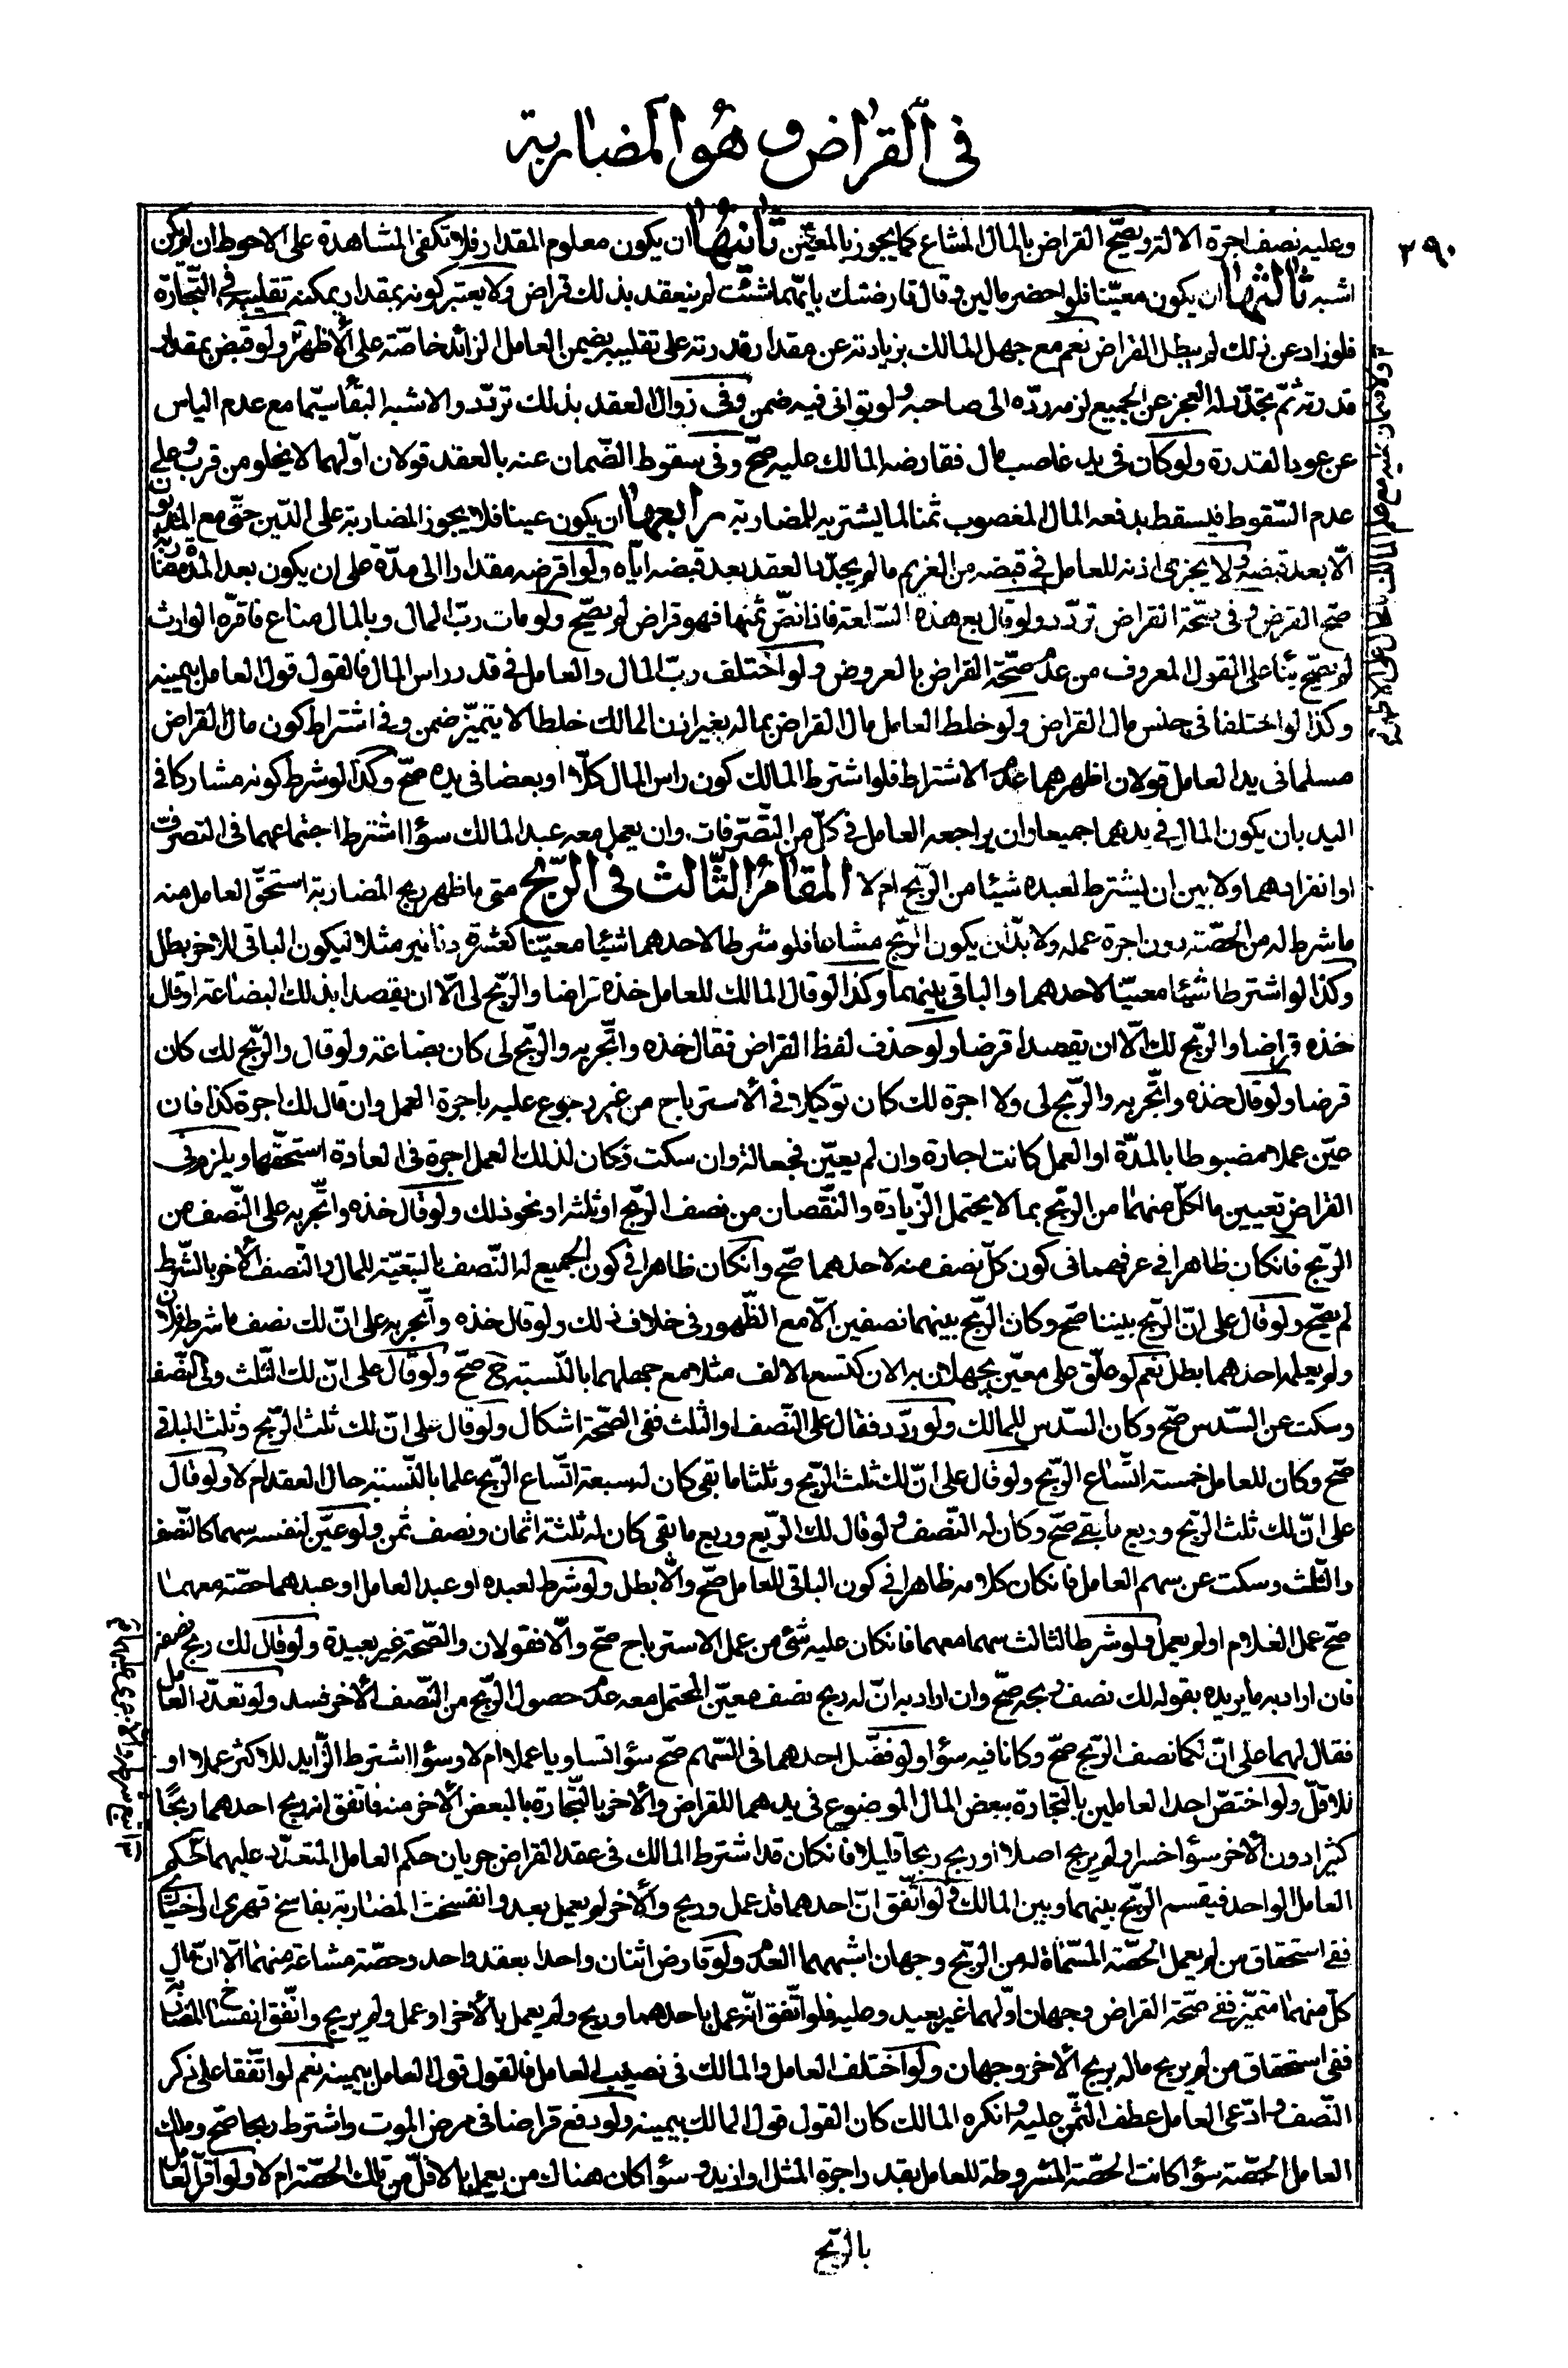 في القراض وهو المضاربة
٣٩٠
وعليه نصف اجرة الالة ويصحّ القراض بالمال المشاع كما يجوز بالمعيّن ثانيها ان يكون معلوم المقدار فلا تكفى المشاهدة على الاحوط ان لم يكن
اشبه ثالثها ان يكون معيّنا فلو احضر مالين وقال قارضتك بايّهما شئت لم ينعقد بذلك قراض ولا يعتبر كونه بمقدار يمكنه تقليبه في التّجارة
فلو زاد عن ذلك لم يبطل القراض نعم مع جهل المالك بزيادته عن مقدار قدرته على تقليبه يضمن العامل الزائد خاصّة على الأظهر ولو قبض بمقدار
قدرته ثمّ تجدّد له العجز عن الجميع لزمه ردّه الى صاحبه ولو توانى فيه ضمن وفى زوال العقد بذلك تردّد والاشبه البقاء سيّما مع عدم الياس
عن عود القدرة ولو كان فى يد غاصب مال فقارضه المالك عليه صحّ وفى سقوط الضّمان عنه بالعقد قولان اوّلهما لا يخلو من قرب وعلى
عدم السّقوط فيسقط بدفعه المال المغصوب ثمنا لما يشتريه للمضاربة رابعها ان يكون عينا فلا يجوز المضاربة على الدّين حتّى مع المديون
الّا بعد قبضه ولا يجزى اذنه للعامل في قبضه من الغريم ما لم يجدّد العقد بعد قبضه ايّاه ولو اقرضه مقدارا الى مدّة على ان يكون بعد المدّة مضاربة
صحّ القرض وفى صحّة القراض تردّد ولو قال بع هذه السّلعة فاذا نضّ ثمنها فهو قراض لم يصحّ ولو مات ربّ المال وبالمال متاع فاقرّه الوارث
لم يصحّ بناء على القول المعروف من عدم صحّة القراض بالعروض ولو اختلف ربّ المال والعامل في قدر راس المال فالقول قول العامل بيمينه
وكذا لو اختلفا في جنس مال القراض ولو خلط العامل مال القراض بماله بغير اذن المالك خلطا لا يتميّز ضمن وفى اشتراط كون مال القراض
مسلما فى يد العامل قولان اظهرهما عدم الاشتراط فلو اشترط المالك كون راس المال كلّا او بعضا فى يده صحّ وكذا لو شرط كونه مشاركا فى
اليد بان يكون المال في يديهما جميعا وان يراجعه العامل في كلّ من التّصرّفات وان يعمل معه عبد المالك سواء اشترط اجتماعهما فى التصرّف
او انفرادهما ولا بين ان يشترط لعبده شيئا من الرّبح ام لا المقام الثّالث في الرّبح متى ما ظهر ربح المضاربة استحقّ العامل منه
ما شرط له من الحصّة دون اجرة عمله ولا بدّ ان يكون الرّبح مشاعا فلو شرطا لاحدهما شيئا معيّنا كعشرة دنانير مثلا ليكون الباقى للاخر بطل
وكذا لو اشترطا شيئا معيّنا لاحدهما والباقى بينهما وكذا لو قال المالك للعامل خذه قراضا والرّبح لى الّا ان يقصدا بذلك البضاعة او قال
خذه قراضا والرّبح لك الّا ان يقصدا قرضا ولو حذف لفظ القراض فقال خذه واتّجر به والرّبح لى كان بضاعة ولو قال والرّبح لك كان
قرضا ولو قال خذه واتّجر به والرّبح لى ولا اجرة لك كان توكيلا في الاسترباح من غير رجوع عليه باجرة العمل وان قال لك اجرة كذا فان
عيّن عملا مضبوطا بالمدّة او العمل كانت اجارة وان لم يعيّن فجعالة وان سكت وكان لذلك العمل اجرة فى العادة استحقّها ويلزم فى
القراض تعيين ما لكلّ منهما من الرّبح بما لا يحتمل الزّيادة والنّقصان من نصف الرّبح او ثلثه او نحو ذلك ولو قال خذه واتّجر به على النّصف من
الرّبح فانكان ظاهرا في عرفهما فى كون كلّ نصف منه لاحدهما صحّ وانكان ظاهرا في كون الجميع له النّصف بالتبعيّة للمال والنّصف الأخر بالشّرط
لم يصحّ ولو قال على انّ الرّبح بيننا صحّ وكان الرّبح بينهما نصفين الّا مع الظّهور في خلاف ذلك ولو قال خذه واتّجر به على انّ لك نصف ما شرط فلان
ولم يعلمه احدهما بطل نعم لو علّق على معيّن يجهلان به الان كتسع الالف مثلا مع جهلهما بالنّسبة ح صحّ ولو قال على انّ لك الثّلث ولى النّصف
وسكت عن السّدس صحّ وكان السّدس للمالك ولو ردّد فقال على النّصف او الثلث ففى الصّحّة اشكال ولو قال على انّ لك ثلث الرّبح وثلث الباقى
صحّ وكان للعامل خمسة اتّساع الرّبح ولو قال على انّ لك ثلث الرّبح وثلثا ما بقى كان له سبعة اتّساع الرّبح علما بالنّسبة حال العقد ام لا ولو قال
على انّ لك ثلث الرّبح وربع ما بقى صحّ وكان له النّصف ولو قال لك الرّبع وربع ما بقى كان له ثلثة اثمان ونصف ثمن ولو عيّن لنفسه سهما كالنّصف
والثّلث وسكت عن سهم العامل فانكان كلامه ظاهرا في كون الباقى للعامل صحّ والّا بطل ولو شرط لعبده او عبد العامل او عبدهما حصّة معهما
صحّ عمل الغلام او لم يعمل ولو شرطا لثالث سهما معهما فانكان عليه شئ من عمل الاسترباح صحّ والّا فقولان والصّحّة غير بعيدة ولو قال لك ربح نصفه
فان اراد به ما يريده بقوله لك نصف ربحه صحّ وان اراد به انّ له ربح نصف معيّن المحتمل معه عدم حصول الرّبح من النّصف الأخر فسد ولو تعدّد العامل
فقال لهما على انّ لكما نصف الرّبح صحّ وكانا فيه سواء ولو فضّل احدهما فى السّهم صحّ سواء تساويا عملا ام لا وسواء اشترط الزّايد للاكثر عملا او
للاقلّ ولو اختصّ احد العاملين بالتّجارة ببعض المال الموضوع فى يدهما للقراض والأخر بالتّجارة بالبعض الأخر منه فاتّفق انه ربح احدهما ربحًا
كثيرا دون الأخر سواء خسر او لم يربح اصلا او ربح ربحا قليلا فانكان قد اشترط المالك فى عقد القراض جريان حكم العامل المتعدّد عليهما كحكم
العامل الواحد فيقسم الرّبح بينهما وبين المالك ولو اتّفق انّ احدهما قد عمل وربح والأخر لم يعمل بعد وانفسخت المضاربة بفاسخ قهرى او اختيارى
ففي استحقاق من لم يعمل الحصّة المسمّاة له من الرّبح وجهان اشبههما العدم ولو قارض اثنان واحدا بعقد واحد وحصّة مشاعة منهما الّا انّ مال
كلّ منهما متميّز ففى صحّة القراض وجهان اوّلهما غير بعيد وعليه فلو اتّفق انّه عمل باحدهما وربح ولم يعمل بالأخر او عمل ولم يربح واتّفق انفساخ المضاربة
ففى استحقاق من لم يربح ماله بربح الأخر وجهان ولو اختلف العامل والمالك فى نصيب العامل فالقول قول العامل بيمينه نعم لو اتّفقا على ذكر
النّصف وادّعى العامل عطف الثّمن عليه وانكره المالك كان القول قول المالك بيمينه ولو دفع قراضا فى مرض الموت واشترط ربحا صحّ وملك
العامل الحصّة سواء كانت الحصّة المشروطة للعامل بقدر اجرة المثل او ازيد وسواء كان هناك من يعمل بالاقلّ من تلك الحصّة ام لا ولو اقرّ العامل
بالرّبح